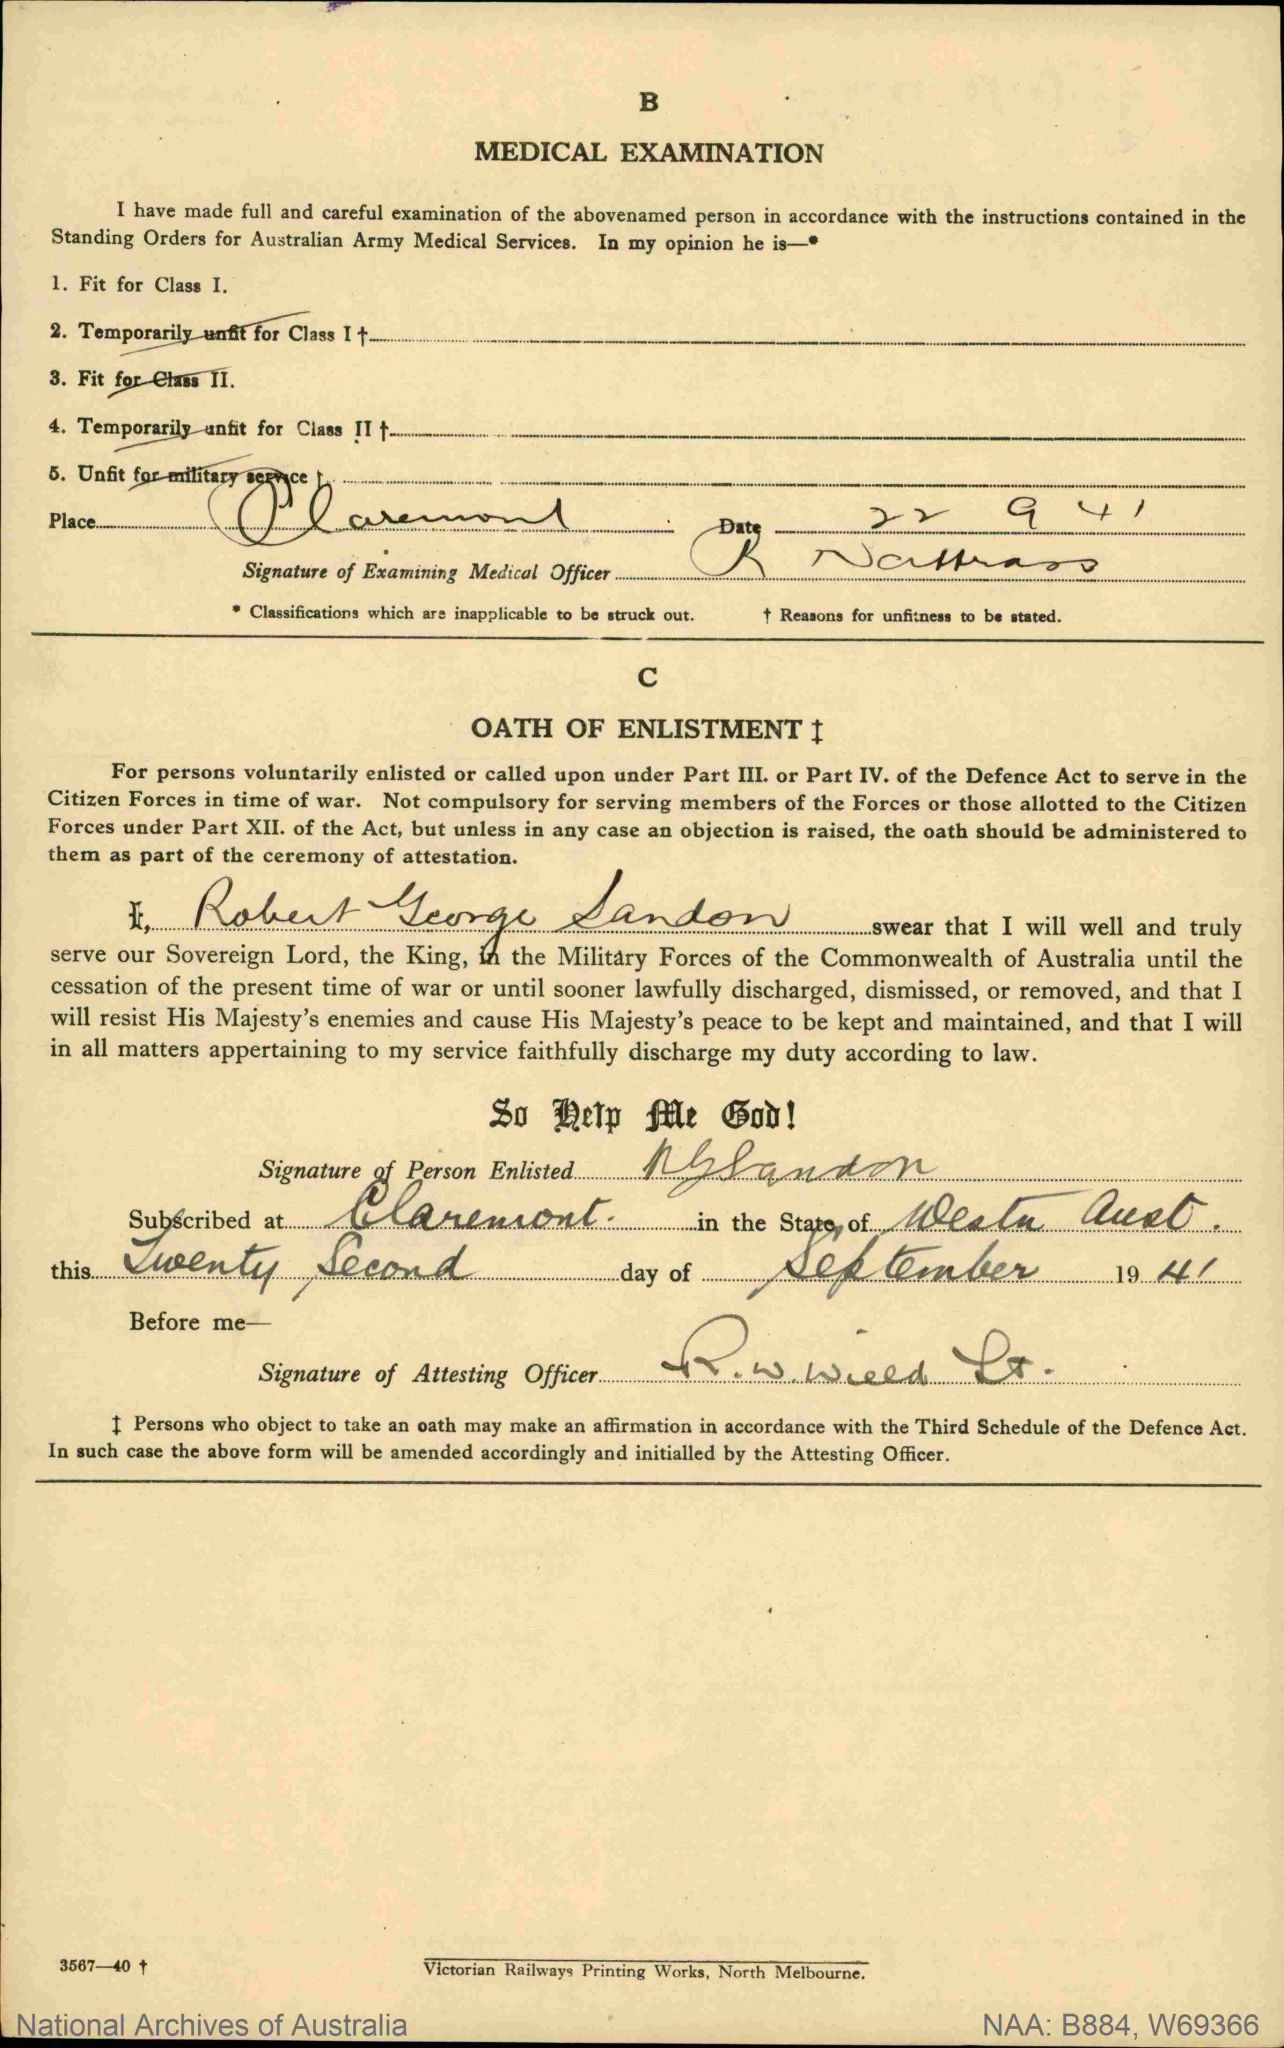 B
MEDICAL EXAMINATION
I have made full and careful examination of the abovenamed person in accordance with the instructions contained in the
Standing Orders for Australian Army Medical Services. In my opinion he is—*
1. Fit for Class I.
2. Temporarily unfit for Class I †
3. Fit for Class II.
4. Temporarily unfit for Class II †
5. Unfit for military service †
Place Claremont Date 22 9 41
Signature of Examining Medical Officer R Nattrass
* Classifications which are inapplicable to be struck out. † Reasons for unfitness to be stated.
C
OATH OF ENLISTMENT ‡
For persons voluntarily enlisted or called upon under Part III. or Part IV. of the Defence Act to serve in the
Citizen Forces in time of war. Not compulsory for serving members of the Forces or those allotted to the Citizen
Forces under Part XII. of the Act, but unless in any case an objection is raised, the oath should be administered to
them as part of the ceremony of attestation.
I, Robert George Sandon swear that I will well and truly
serve our Sovereign Lord, the King, in the Military Forces of the Commonwealth of Australia until the
cessation of the present time of war or until sooner lawfully discharged, dismissed, or removed, and that I
will resist His Majesty's enemies and cause His Majesty's peace to be kept and maintained, and that I will
in all matters appertaining to my service faithfully discharge my duty according to law.
So Help Me God!
Signature of Person Enlisted RGSandon
Subscribed at Claremont. in the State of Westn Aust.
this Twenty Second day of September 19 41
Before me—
Signature of Attesting Officer R. W. Wield Lt.
‡ Persons who object to take an oath may make an affirmation in accordance with the Third Schedule of the Defence Act.
In such case the above form will be amended accordingly and initialled by the Attesting Officer.
3567—40 † Victorian Railways Printing Works, North Melbourne.
National Archives of Australia NAA: B884, W69366